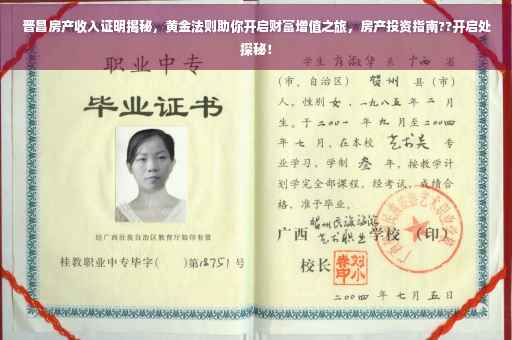 晋昌房产收入证明揭秘，黄金法则助你开启财富增值之旅，房产投资指南??开启处
探秘！
职业中专
毕业证书
经广西壮族自治区教育厅验印有效
桂教职业中专毕字（　）第18751号
学生 系 广西 省
（市、自治区）贺州 县（市）
人，性别女，一九八五年 二 月
生。于二00一 年九 月至二00四
年 七 月，在本校 专
业学习，学制 叁 年，按教学计
划学完全部课程，经考试，成绩合
格，准予毕业。
广西 学校（印）
校长
二00四 年 七 月 五 日